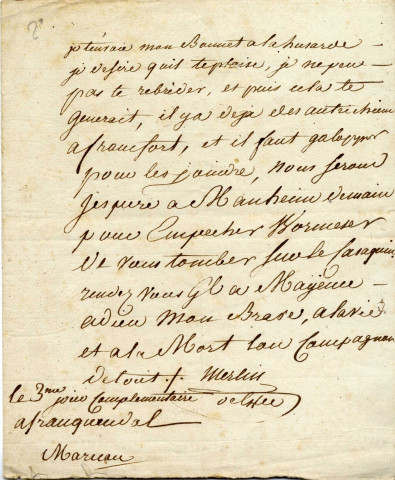 je t'envoie mon Bonnet a la husarde –
je desire quil te plaise, je ne peu –
pas te rebrider, et puis cela te
generait, il y a deja des autrichiens
a francfort, et il faut galopper
pour les joindre, nous serons
j'espere a Manheim demain
pour Empecher Wormeser
de vous tomber sur le Casaquin,
rendez vous Gl a Mayence –
adieu mon Brave, a la vie
et a la Mort ton Compagnon
Merlin
le 3me jour Complementaire
a franquendal
Marceau